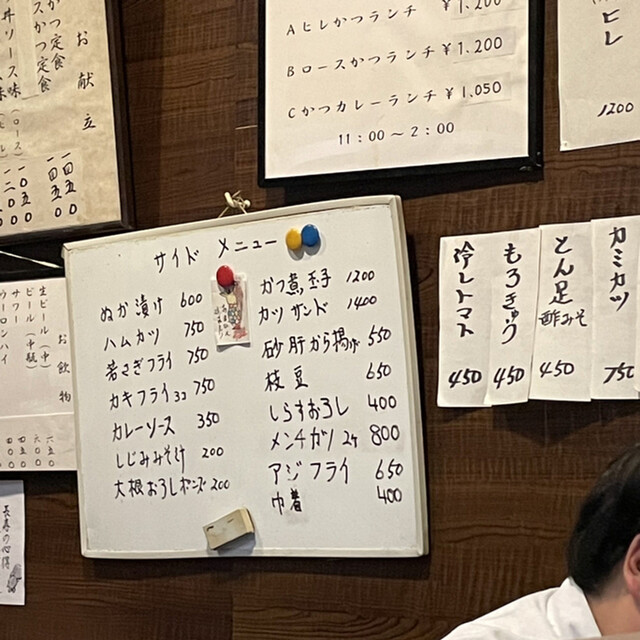 お献立
¥1,200
Aヒレかつランチ
Bロースかつランチ ¥1,200
Cかつカレーランチ ¥1,050
11:00~2:00
ヒレ
1200
サイド メニュー
ぬか漬け 600
ハムカツ 750
若さぎフライ 750
カキフライ3コ 750
カレーソース 350
しじみみそ汁 200
大根おろしポンズ 200
かつ煮,玉子 1200
カツサンド 1400
砂肝から揚げ 550
枝豆 650
しらすおろし 400
メンチカツ2ケ 800
アジフライ 650
巾着 400
冷しトマト 450
もろきゅう 450
とん足 酢みそ 450
カミカツ 750
お飲物
生ビール(中)
ビール(中瓶)
サワー
ウーロンハイ
長寿の心得